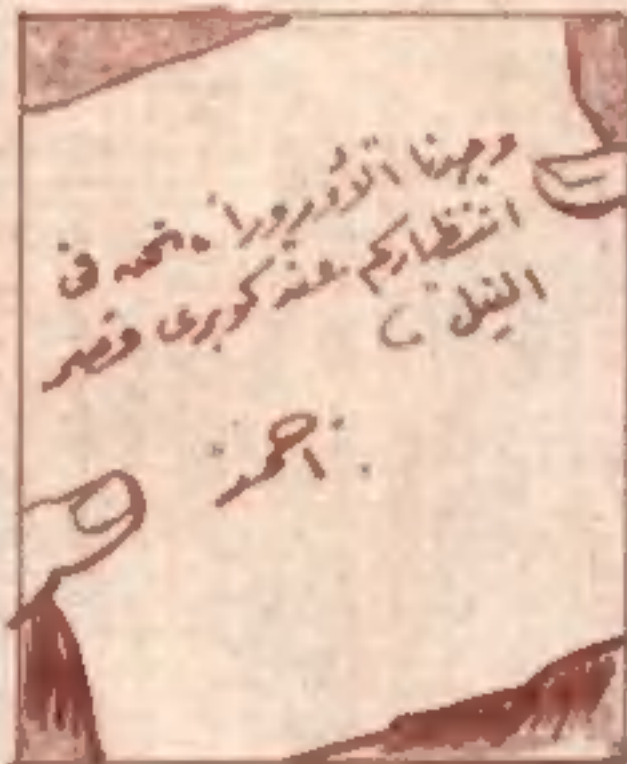 وجدنا الأورورا، نحن فى
انتظاركم عند كوبرى قصر
النيل
أحمد